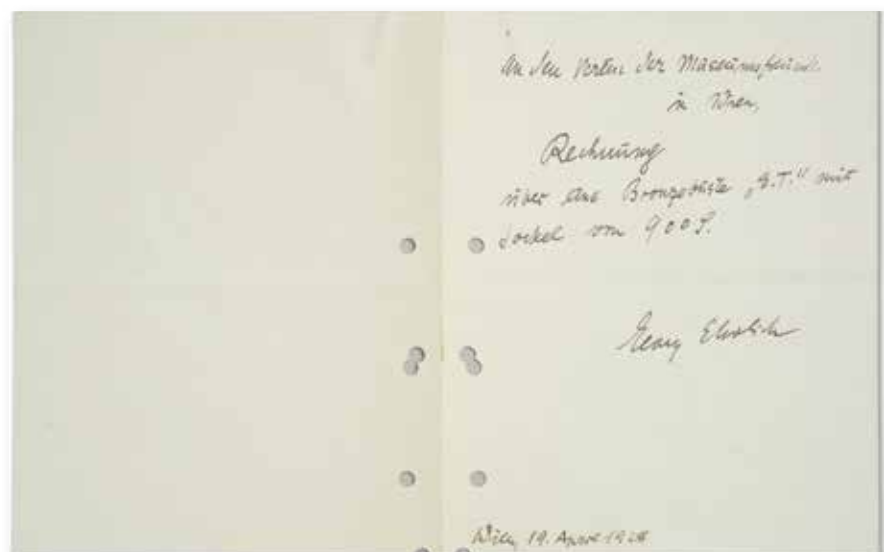 An den Verein der Museumsfreunde
in Wien.
Rechnung
über eine Bronzebüste „E.T.“ mit
Sockel von 900 S.
Georg Ehrlich
Wien, 19. April 1928